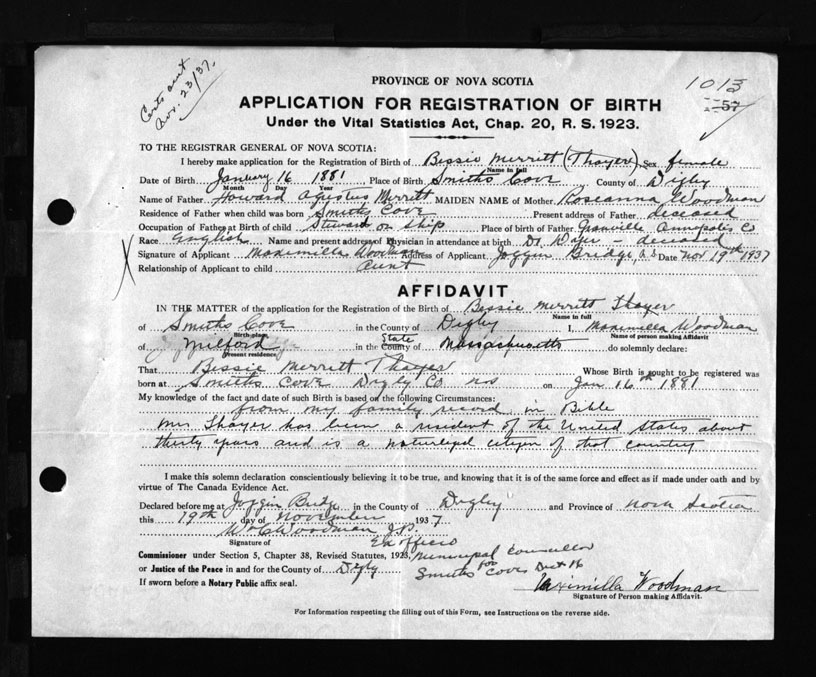 Nov. 23/37.
PROVINCE OF NOVA SCOTIA
1013
57
APPLICATION FOR REGISTRATION OF BIRTH
Under the Vital Statistics Act, Chap. 20, R. S. 1923.
TO THE REGISTRAR GENERAL OF NOVA SCOTIA:
I hereby make application for the Registration of Birth of Bessie Merritt (Thayer), Sex female
Name in full
Date of Birth January 16 1881, Place of Birth Smiths Cove County of Digby
Month Day Year
Name of Father Howard Agustus Merritt MAIDEN NAME of Mother Roseanna Woodman
Residence of Father when child was born Smiths Cove Present address of Father deceased
Occupation of Father at Birth of child Steward on Ship Place of birth of Father Granville Annapolis Co
Race English Name and present address of Physician in attendance at birth Dr. – deceased
Signature of Applicant Maximilla Woodman Address of Applicant Joggin Bridge, N.S Date Nov 19th 1937
Relationship of Applicant to child Aunt
AFFIDAVIT
IN THE MATTER of the application for the Registration of the Birth of Bessie Merritt Thayer
Name in full
of Smiths Cove in the County of Digby I, Maximilla Woodman
Birth-place Name of person making Affidavit
of Milford in the County State of Massachusetts do solemnly declare:
Present residence
That Bessie Merritt Thayer Whose Birth is sought to be registered was
born at Smiths Cove Digby Co NS on Jan 16th 1881
My knowledge of the fact and date of such Birth is based on the following Circumstances:
from my family record in Bible
Mrs Thayer has been a resident of the United States about
thirty years and is a naturlized citizen of that country
I make this solemn declaration conscientiously believing it to be true, and knowing that it is of the same force and effect as if made under oath and by
virtue of The Canada Evidence Act.
Declared before me at Joggin Bridge in the County of Digby and Province of Nova Scotia
this 19th day of November 1937
Wm C Woodman J.P.
Signature of Ex officio
Commissioner under Section 5, Chapter 38, Revised Statutes, 1923, Municipal Councillor
or Justice of the Peace in and for the County of Digby for Smiths Cove Dist 16
If sworn before a Notary Public affix seal.
Maximilla Woodman
Signature of Person making Affidavit.
For Information respecting the filling out of this Form, see Instructions on the reverse side.